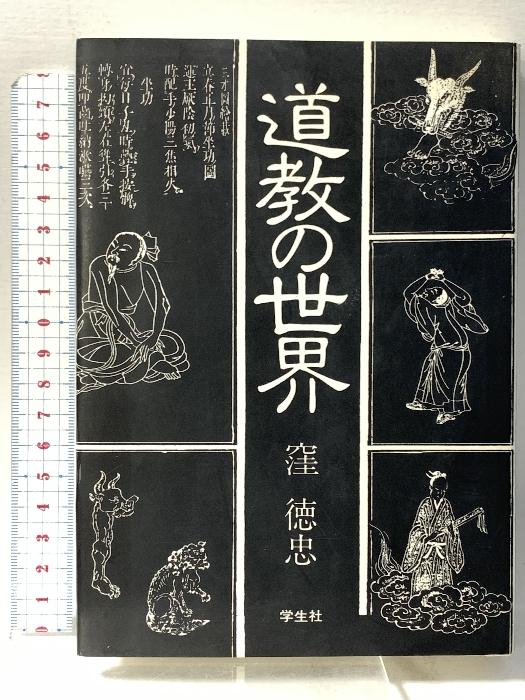 道教の世界
窪 徳忠
学生社
立春正月節坐功圖
運主厥陰初氣
時配手少陽三焦相火
坐功
宜每日子丑時疊手按髀
轉身拗頸左右聳引各三五度叩齒吐納漱嚥三次
7
6
5
4
3
2
1
0
9
8
7
6
5
4
3
2
1
0